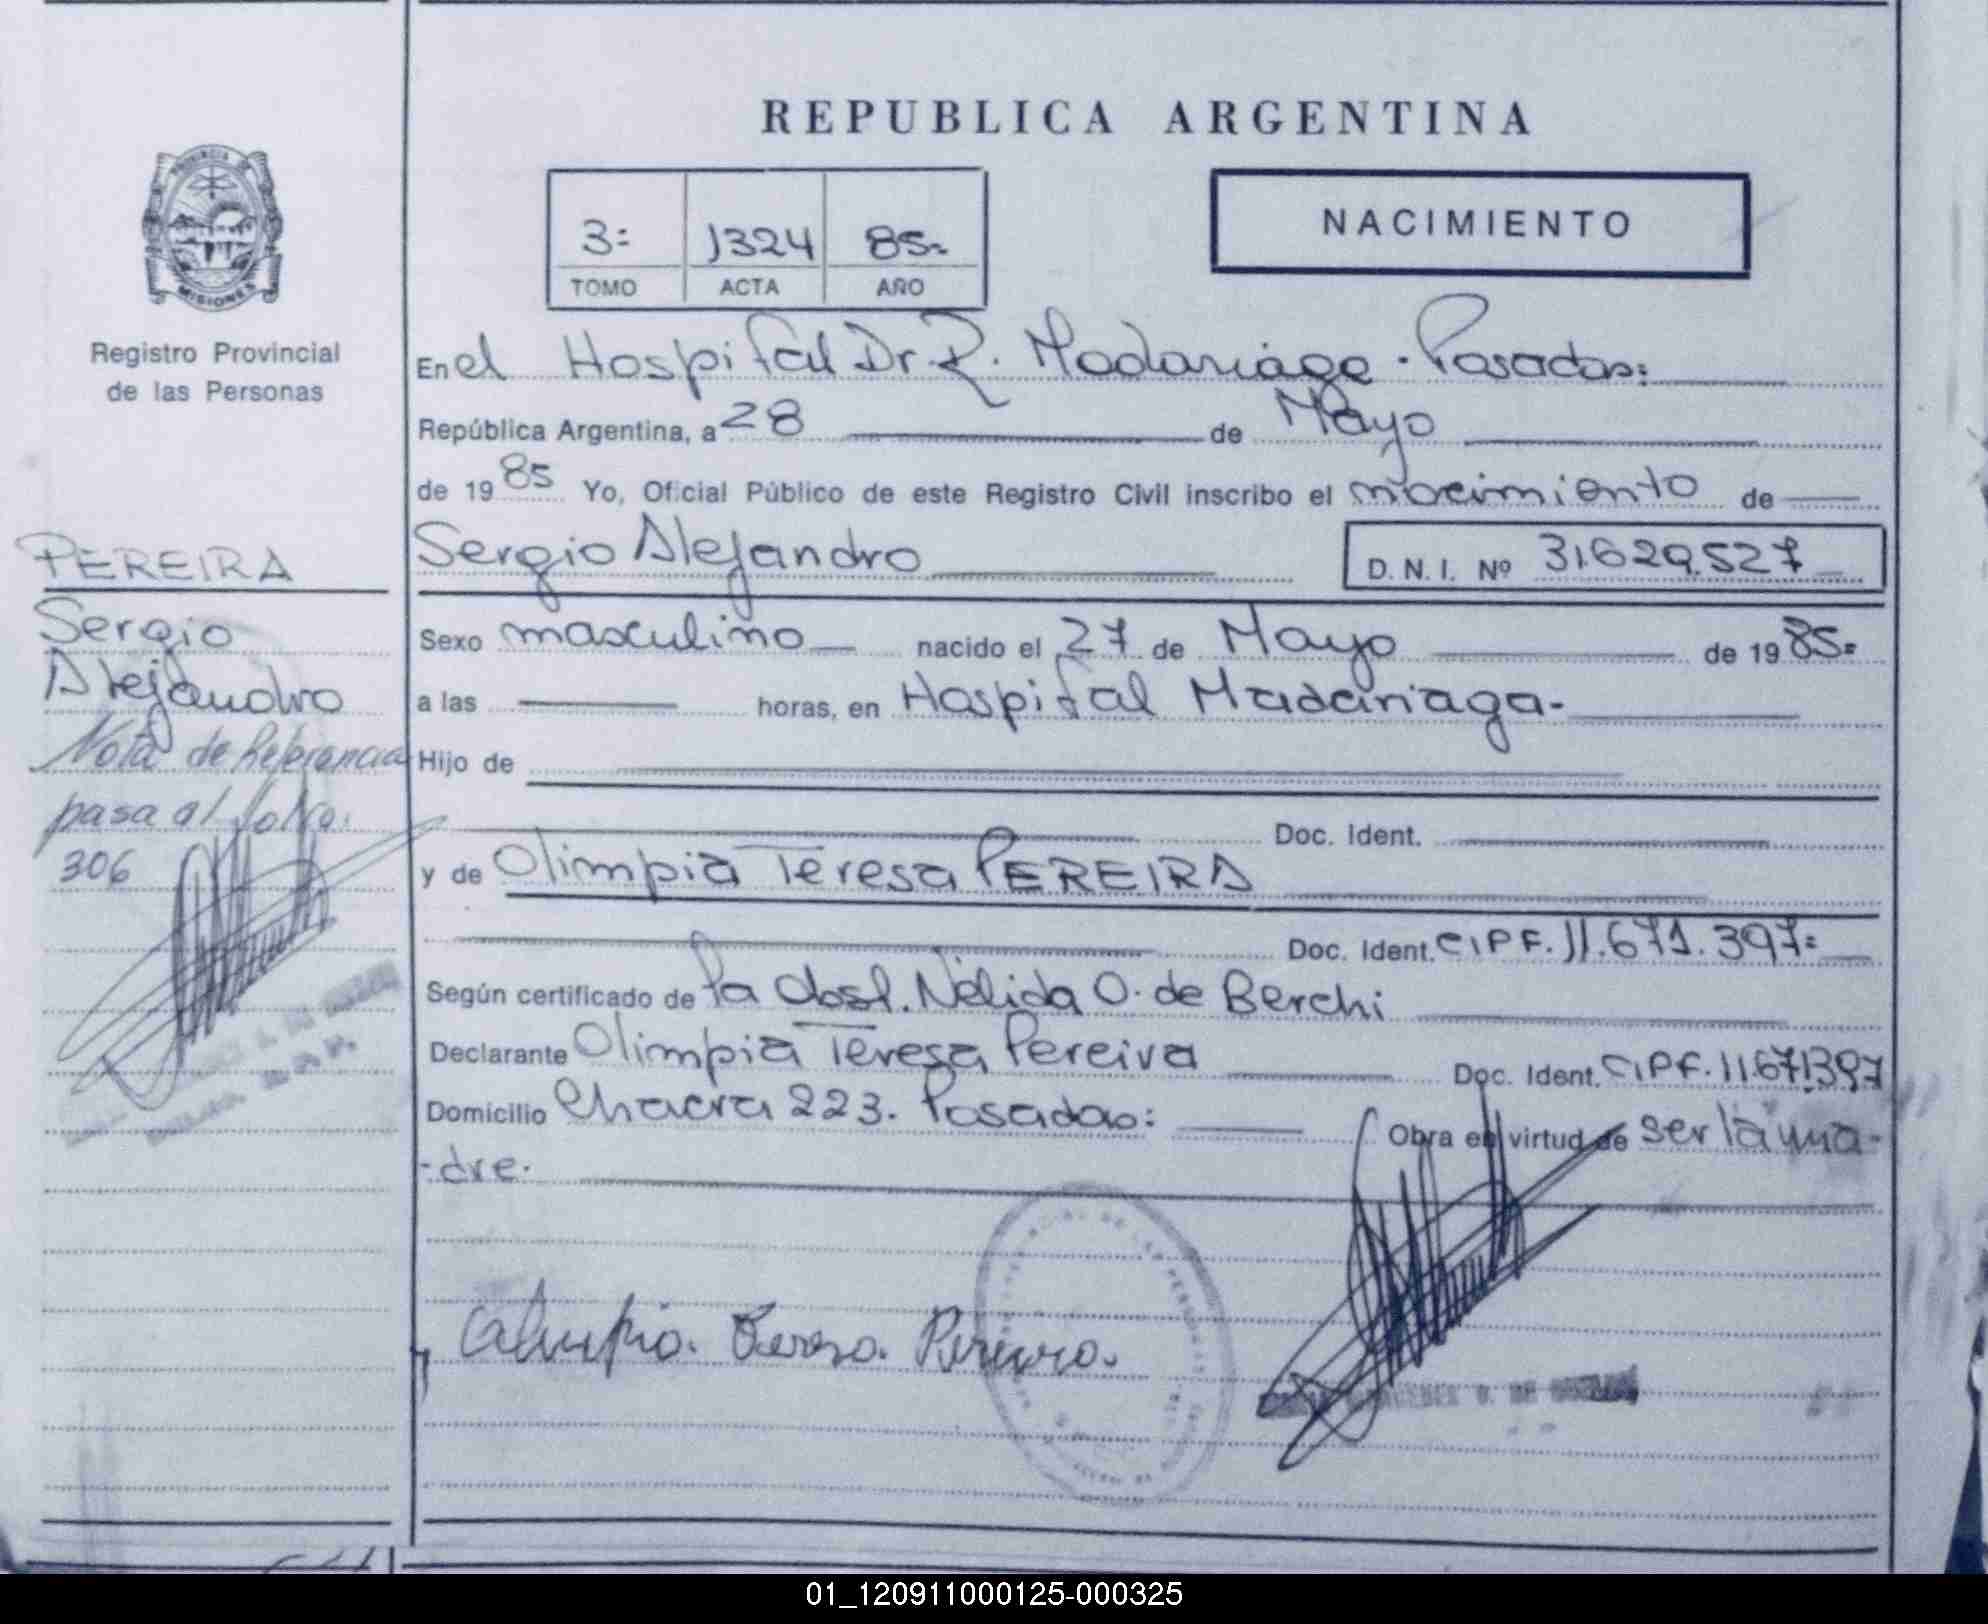 REPUBLICA ARGENTINA
PROVINCIA DE
MISIONES
Registro Provincial
de las Personas
3= 1324 85=
TOMO ACTA AÑO
NACIMIENTO
En el Hospital Dr R. Madariaga. Posadas:
República Argentina, a 28 de Mayo
de 1985 Yo, Oficial Público de este Registro Civil inscribo el nacimiento de
Sergio Alejandro
D. N. I. Nº 31.629.527
Sexo masculino nacido el 27 de Mayo de 1985=
a las horas, en Hospital Madariaga-
Hijo de
Doc. Ident.
y de Olimpia Teresa PEREIRA
Doc. Ident. CIPF. 11.671.397=
Según certificado de la Obst. Nélida O. de Berchi
Declarante Olimpia Teresa Pereira Doc. Ident. CIPF. 11.671.397
Domicilio Chacra 223. Posadas: Obra en virtud de ser la ma-
-dre.
Olimpia. Teresa. Pereira.
PEREIRA
Sergio
Alejandro
Nota de Referencia
pasa al folio.
306
01_120911000125-000325